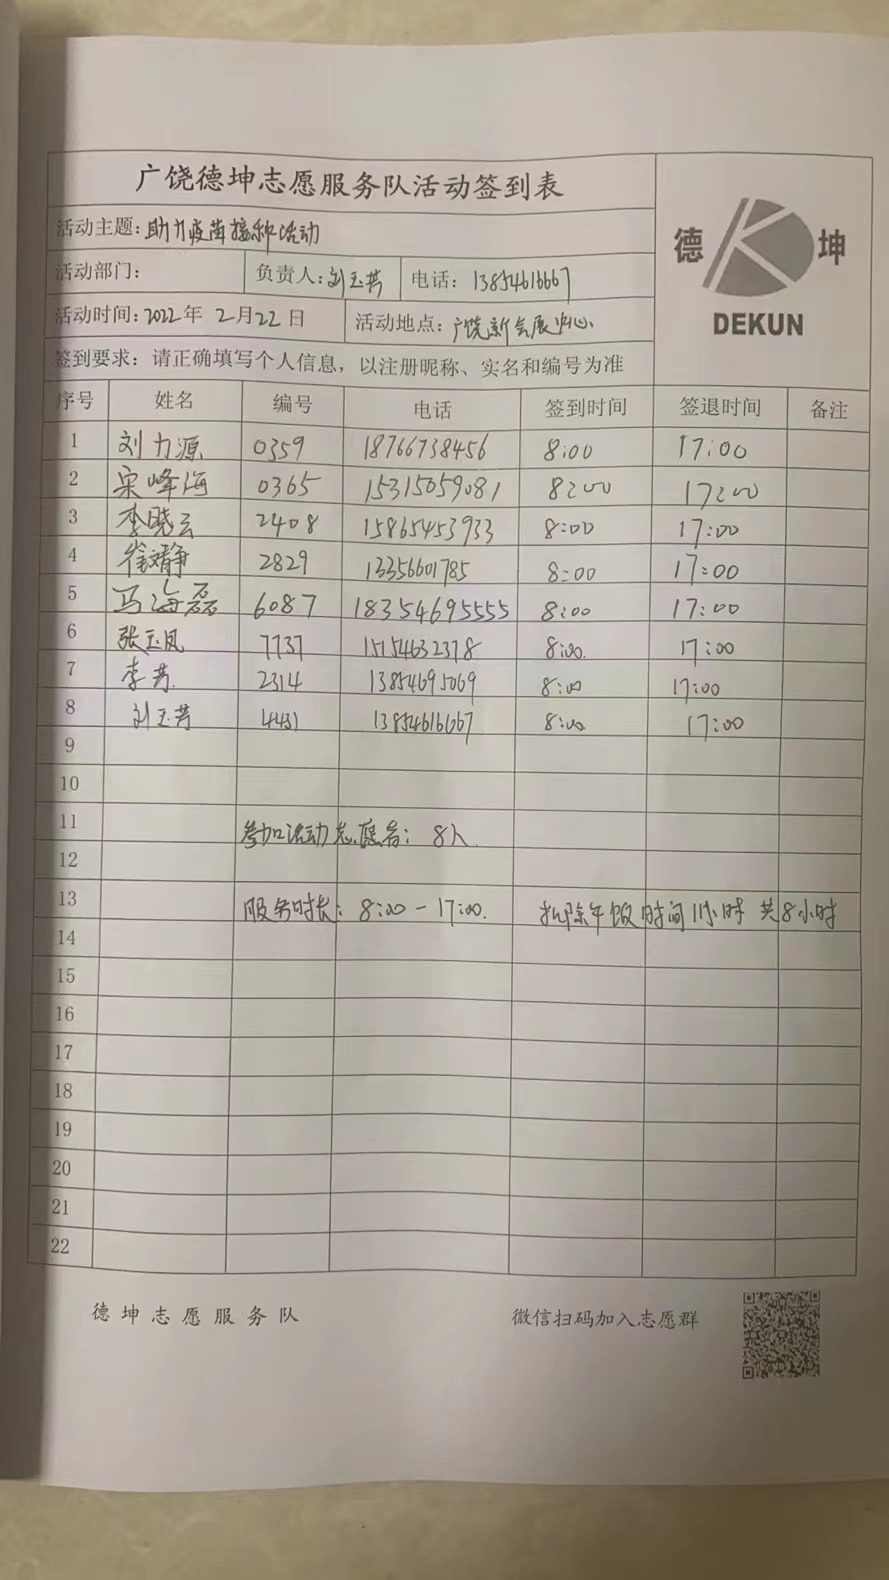 广饶德坤志愿服务队活动签到表
德 坤
DEKUN
活动主题：助力疫苗接种活动
活动部门： 负责人：刘玉芳 电话：13854616667
活动时间：2022年 2月22日 活动地点：广饶新会展中心
签到要求：请正确填写个人信息，以注册昵称、实名和编号为准
序号 姓名 编号 电话 签到时间 签退时间 备注
1 刘力源 0359 18766738456 8:00 17:00
2 宋峰海 0365 15315059081 8:00 17:00
3 李晓云 2408 15865453933 8:00 17:00
4 徐文静 2829 13356601785 8:00 17:00
5 马海磊 6087 18354695555 8:00 17:00
6 张玉凤 7737 15154632378 8:00 17:00
7 李芳 2314 13854695069 8:00 17:00
8 刘玉芳 4431 13854616667 8:00 17:00
9
10
11 参加活动志愿者：8人
12
13 服务时长：8:00-17:00. 扣除午饭时间1小时 共8小时
14
15
16
17
18
19
20
21
22
德坤志愿服务队 微信扫码加入志愿群